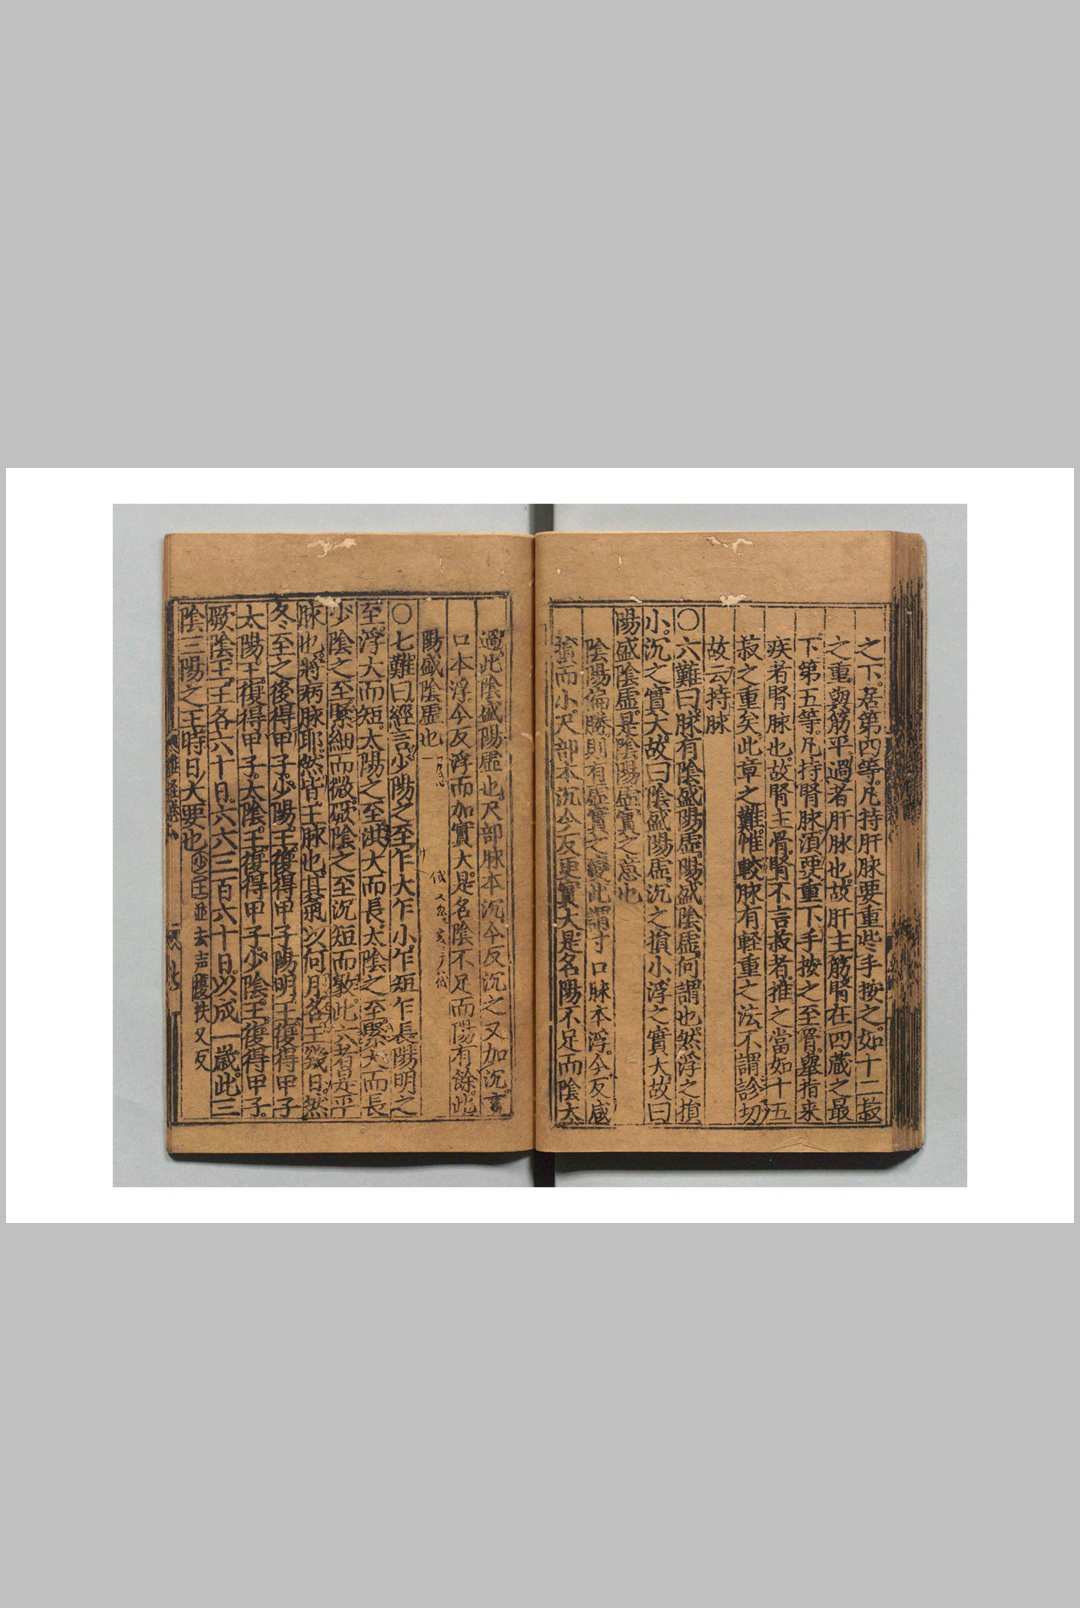 之下居第四等凡持肝脉要重些手按之如十二菽
之重與筋平過者肝脉也故肝主筋腎在四蔵之最
下第五等凡持腎脉須要重下手按之至骨舉指来
疾者腎脉也故腎主骨腎不言菽者推之當如十五
菽之重矣此章之難惟較脉有軽重之法不謂診切
故云持脉
〇六難曰脉有陰盛陽虚陽盛陰虚何謂也然浮之損
小沉之實大故曰陰盛陽虚沉之損小浮之實大故曰
陽盛陰虚是陰陽虚實之意也
陰陽偏勝則有虚實之變此謂寸口脉本浮今反
而小尺部本沉今反更實大是名陽不足而陰太
過此陰盛陽虚也尺部脉本沉今反沉之又加沉
口本浮今反浮而加實大是名陰不足而陽有餘此
陽盛陰虚也
〇七難曰經言少陽之至乍大乍小乍短乍長陽明之
至浮大而短太陽之至洪大而長太陰之至緊大而長
少陰之至緊細而微厥陰之至沉短而敦此六者是平
脉也將病脉耶然皆王脉也其氣以何月各王幾日然
冬至之後得甲子少陽王復得甲子陽明王復得甲子
太陽王復得甲子太陰王復得甲子少陰王復得甲子
厥陰王王各六十日六六三百六十日以成一歳此三
陰三陽之王時日大要也 少王並去声 扶又反